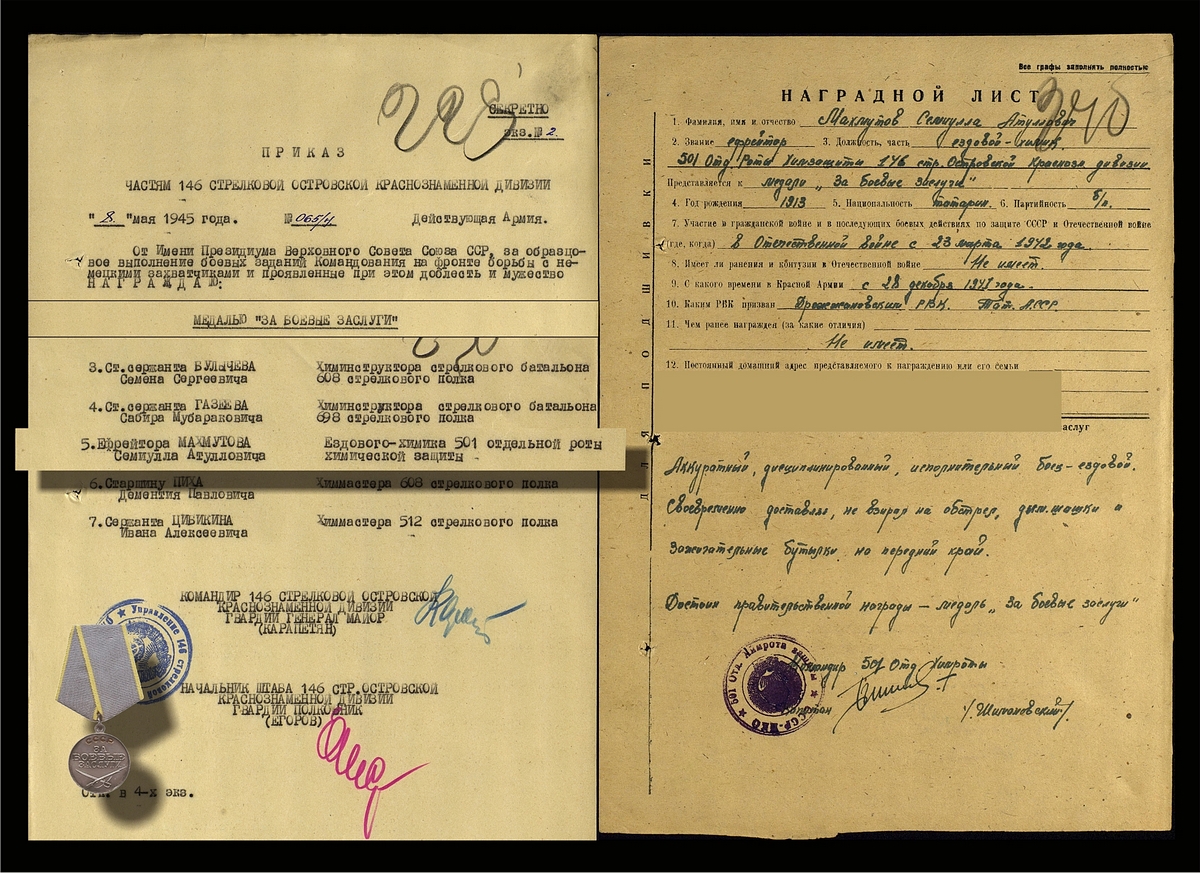 СЕКРЕТНО
экз.№ 2.
ПРИКАЗ
ЧАСТЯМ 146 СТРЕЛКОВОЙ ОСТРОВСКОЙ КРАСНОЗНАМЕННОЙ ДИВИЗИИ
"8." мая 1945 года. № 065/н Действующая Армия.
От Имени Президиума Верховного Совета Союза ССР, за образцо-
вое выполнение боевых заданий Командования на фронте борьбы с не-
мецкими захватчиками и проявленные при этом доблесть и мужество
НАГРАЖДАЮ:
МЕДАЛЬЮ "ЗА БОЕВЫЕ ЗАСЛУГИ"
3. Ст.сержанта БУЛЫЧЕВА Химинструктора стрелкового батальона
Семена Сергеевича 608 стрелкового полка
4. Ст.сержанта ГАЗЕЕВА Химинструктора стрелкового батальона
Сабира Мубараковича 698 стрелкового полка
5. Ефрейтора МАХМУТОВА Ездового-химика 501 отдельной роты
Семиулла Атулловича химической защиты
6. Старшину ПИХА Химмастера 608 стрелкового полка
Дементия Павловича
7. Сержанта ЦИВИКИНА Химмастера 512 стрелкового полка
Ивана Алексеевича
КОМАНДИР 146 СТРЕЛКОВОЙ ОСТРОВСКОЙ
КРАСНОЗНАМЕННОЙ ДИВИЗИИ
ГВАРДИИ ГЕНЕРАЛ МАЙОР
(КАРАПЕТЯН)
Управление 146 стрелковой
НАЧАЛЬНИК ШТАБА 146 СТР.ОСТРОВСКОЙ
КРАСНОЗНАМЕННОЙ ДИВИЗИИ
ГВАРДИИ ПОЛКОВНИК
(ЕГОРОВ)
СССР
ЗА
БОЕВЫЕ
ЗАСЛУГИ
в 4-х экз.
Все графы заполнять полностью
НАГРАДНОЙ ЛИСТ
240
1. Фамилия, имя и отчество Махмутов Семиулла Атуллович
2. Звание ефрейтор 3. Должность, часть ездовой-химик
501 Отд. Роты Химзащиты 146 стр. Островской Краснозн. дивизии
Представляется к медали „За боевые заслуги"
4. Год рождения 1913 5. Национальность татарин. 6. Партийность б/п.
7. Участие в гражданской войне и в последующих боевых действиях по защите СССР и Отечественной войне
(где, когда) в Отечественной войне с 23 марта 1942 года.
8. Имеет ли ранения и контузии в Отечественной войне Не имеет.
9. С какого времени в Красной Армии с 28 декабря 1941 года.
10. Каким РВК призван Дрожжановским РВК. Тат. АССР.
11. Чем ранее награжден (за какие отличия)
Не имеет.
12. Постоянный домашний адрес представляемого к награждению или его семьи
заслуг
Аккуратный, дисциплинированный, исполнительный боец-ездовой.
Своевременно доставлял, не взирая на обстрел, дым.шашки и
зажигательные бутылки на передний край.
Достоин правительственной награды – медаль „За боевые заслуги"
Командир 501 Отд Химроты
Капитан /Шимановский/.
ДЛЯ ПОДШИВКИ